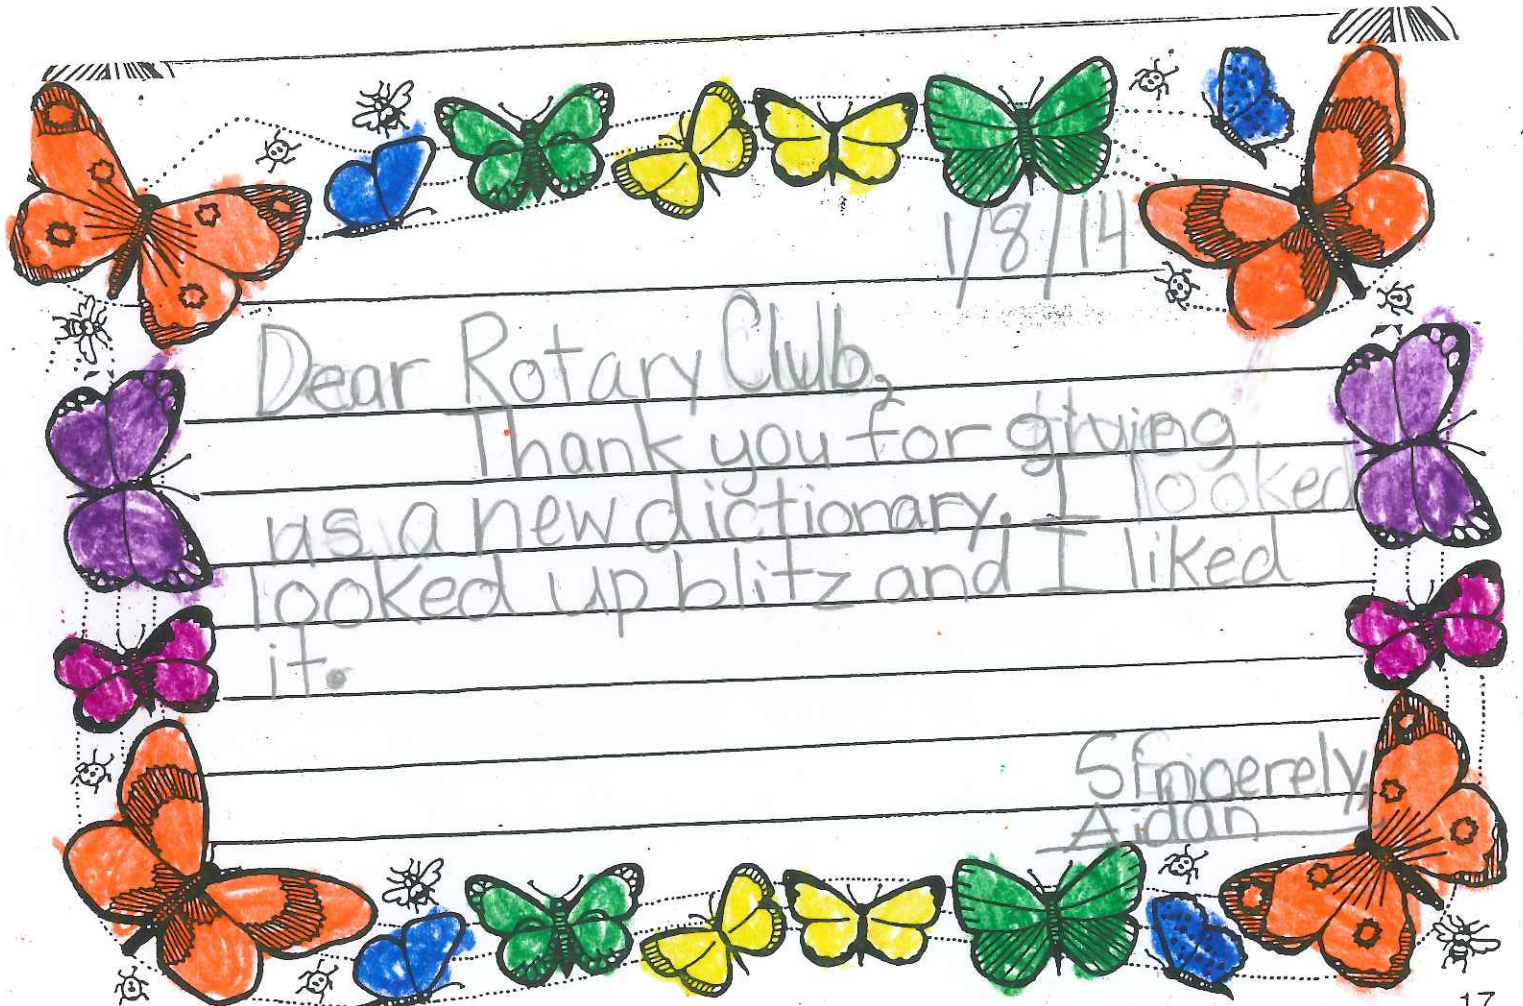 1/8/14
Dear Rotary Club,
Thank you for giving
us a new dictionary. I looked
looked up blitz and I liked
it.
Sincerely,
Aidan
17